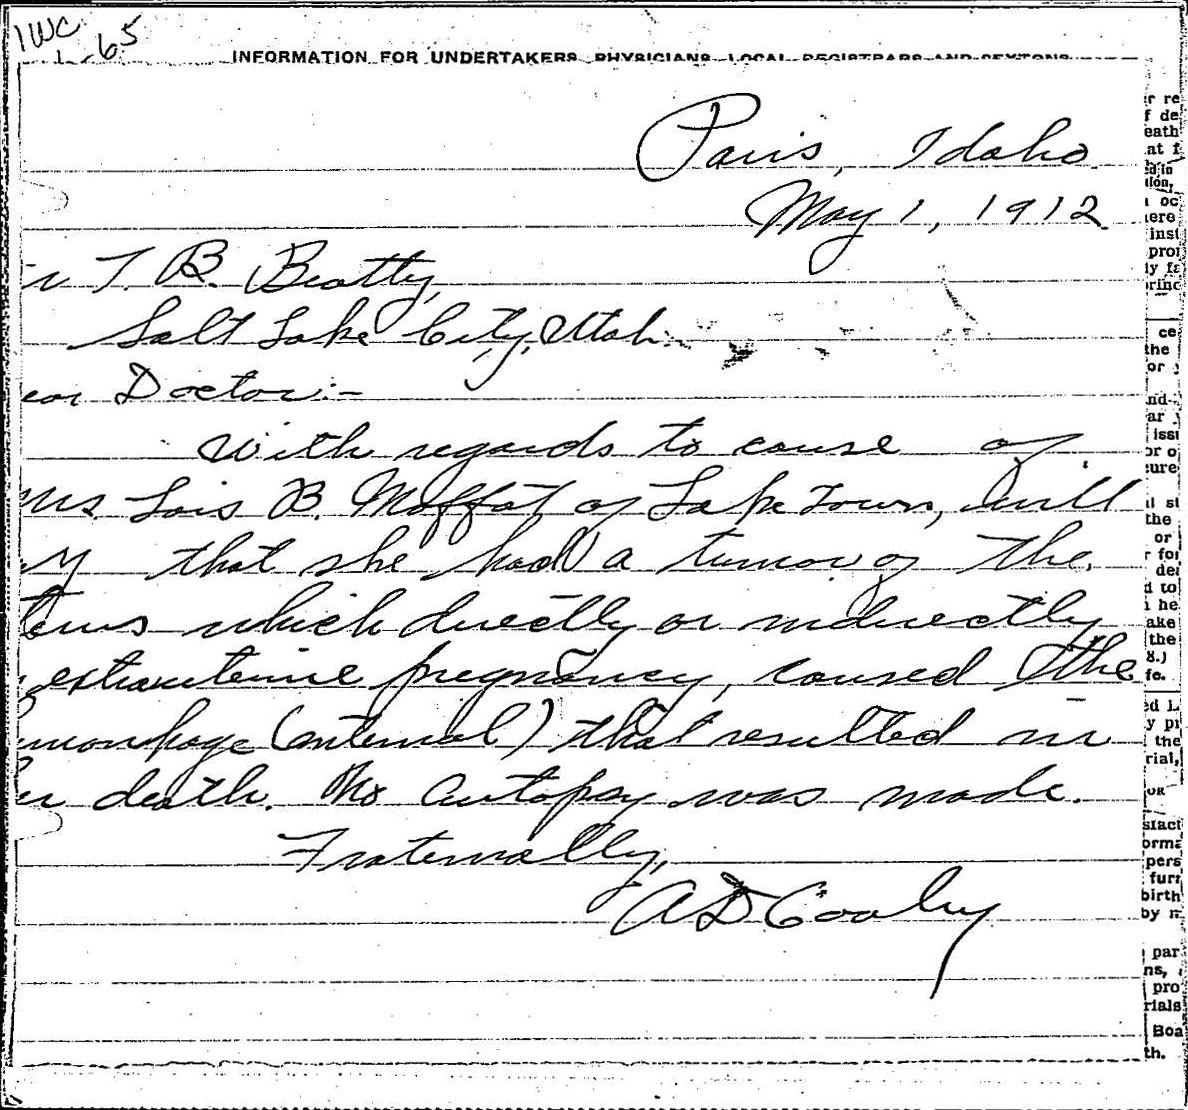 IWC
1-65
INFORMATION FOR UNDERTAKERS PHYSICIANS LOCAL REGISTRARS AND SEXTONS
Paris, Idaho.
May 1, 1912
r T. B. Beatty,
Salt Lake City, Utah.
ear Doctor:-
With regards to cause of
Mrs. Lois B. Moffat of Lake Town, will
ay that she had a tumor of the
terus which directly or indirectly
, extrauterine pregnancy, caused the
emorrhage (internal) that resulted in
er death. No autopsy was made.
Fraternally,
A D Cooley
r re
f de
eath
at f
ed in
tion,
oc
here
inst
pro
ly fa
princ
ce
the
or
nd-
ar
issu
or o
cure
l st
the
or
r for
de
d to
he
ake
the
8.)
fe.
ed L
y pr
the
rial,
OR
sfact
orma
pers
furr
birth
by m
par
ns,
pro
rials
Boa
th.